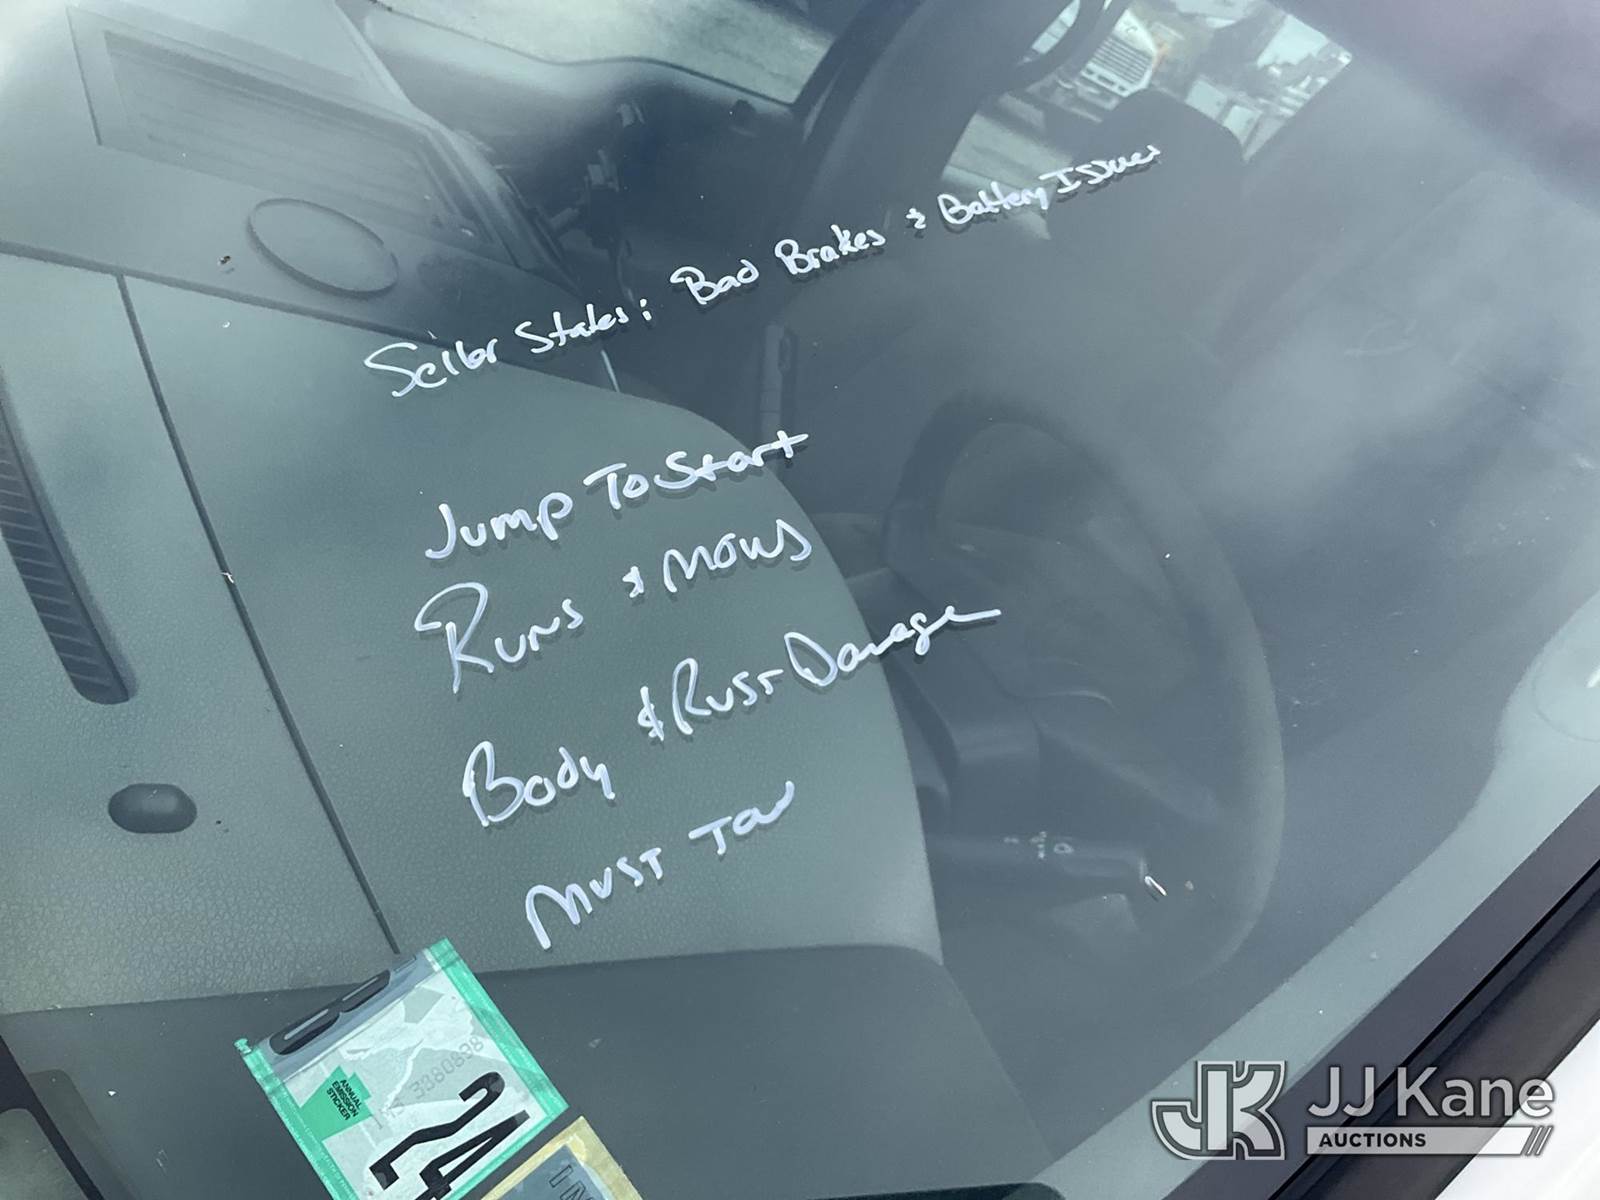 Seller States: Bad Brakes & Battery Issues
Jump To Start
Runs & Moves
Body & Rust Damage
Must Tow
ANNUAL
EMISSION
STICKER
24
JJ Kane
AUCTIONS